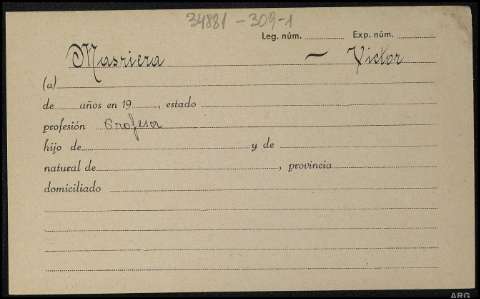 34881-309-1
Leg. núm. Exp. núm.
Masriera — Victor
(a)
de años en 19 , estado
profesión Profesor
hijo de y de
natural de , provincia
domiciliado
ARG